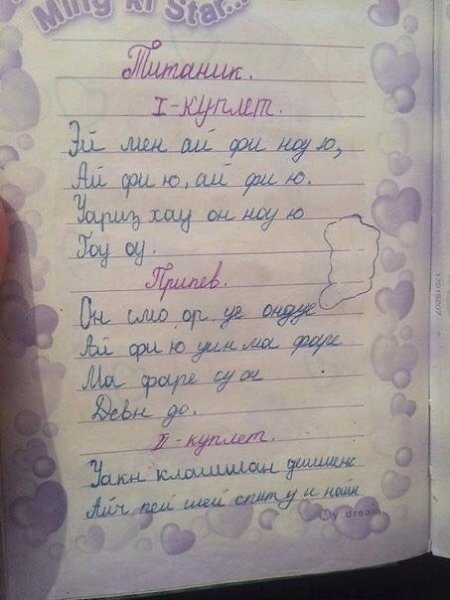 Ming ki Star...
Титаник.
I-куплет.
Эй мен ай фи ноу ю,
Ай фи ю, ай фи ю.
Уариз хау он ноу ю
Гоу оу.
Припев.
Он смо ор уе ондуе
Ай фи ю уин ма фаре
Ма фаре су он
Девн до.
II-куплет.
Уакн клашиан дешиенс
Айч пей шей спит у и найн
My dream